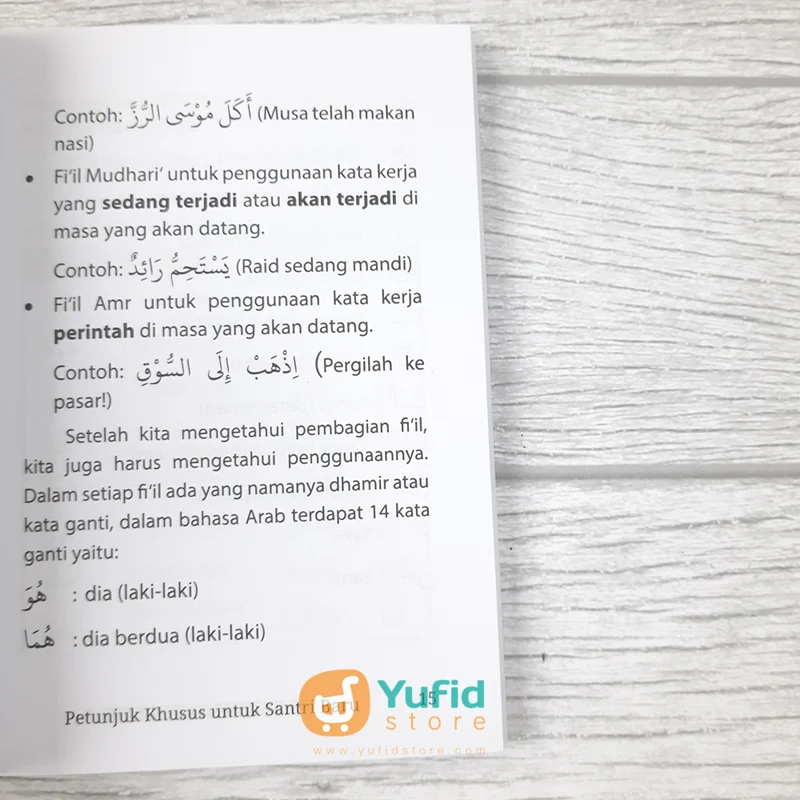 Contoh: أَكَلَ مُوْسَى الرُّزَّ (Musa telah makan
nasi)
• Fi‘il Mudhari‘ untuk penggunaan kata kerja
yang sedang terjadi atau akan terjadi di
masa yang akan datang.
Contoh: يَسْتَحِمُّ رَائِدٌ (Raid sedang mandi)
• Fi‘il Amr untuk penggunaan kata kerja
perintah di masa yang akan datang.
Contoh: اِذْهَبْ إِلَى السُّوْقِ (Pergilah ke
pasar!)
Setelah kita mengetahui pembagian fi‘il,
kita juga harus mengetahui penggunaannya.
Dalam setiap fi‘il ada yang namanya dhamir atau
kata ganti, dalam bahasa Arab terdapat 14 kata
ganti yaitu:
هُوَ : dia (laki-laki)
هُمَا : dia berdua (laki-laki)
Petunjuk Khusus untuk Santri Baru 15
Yufid
store
www.yufidstore.com